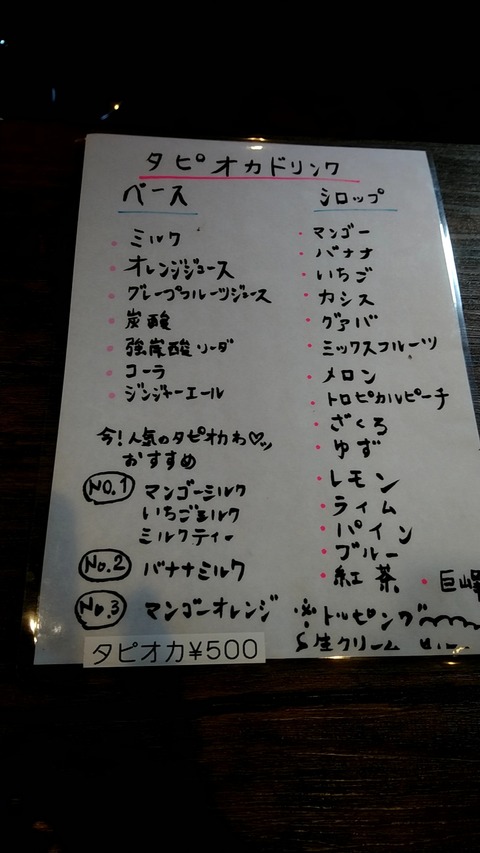 タピオカドリンク
ベース
ミルク
オレンジジュース
グレープフルーツジュース
炭酸
強炭酸ソーダ
コーラ
ジンジャーエール
今!人気のタピオカわ♡
おすすめ
No.1 マンゴーミルク
いちごミルク
ミルクティー
No.2 バナナミルク
No.3 マンゴーオレンジ
タピオカ¥500
シロップ
マンゴー
バナナ
いちご
カシス
グアバ
ミックスフルーツ
メロン
トロピカルピーチ
ざくろ
ゆず
レモン
ライム
パイン
ブルー
紅茶 ・巨峰
※トッピング
生クリーム